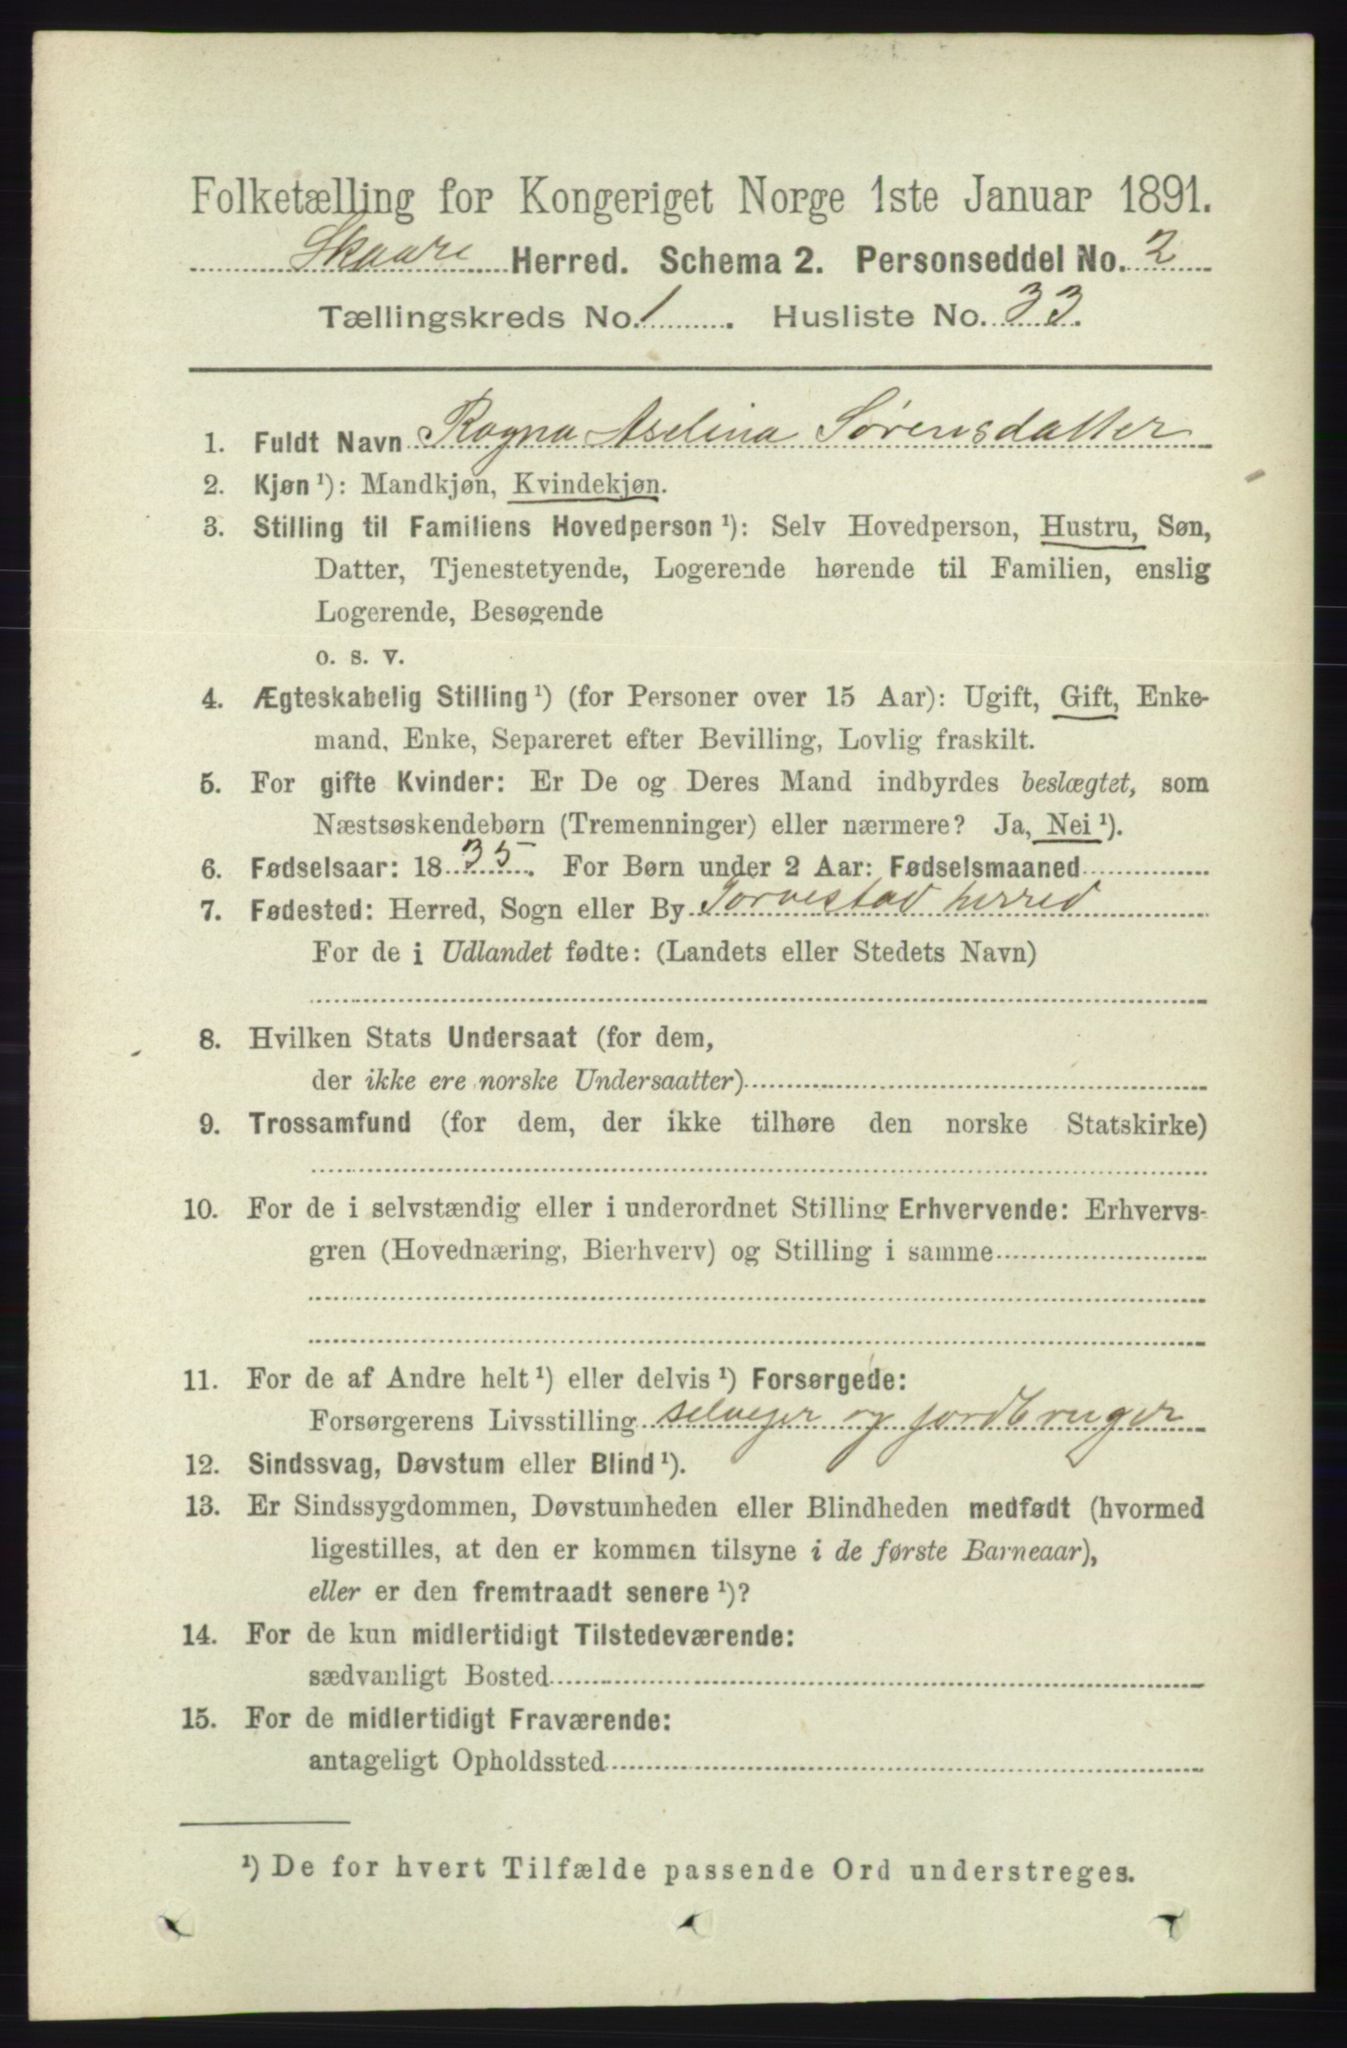 Folketælling for Kongeriget Norge 1ste Januar 1891.
Skaare Herred. Schema 2. Personseddel No. 2
Tællingskreds No. 1. Husliste No. 33.
1. Fuldt Navn Ragna Aselina Sørensdatter
2. Kjøn ¹): Mandkjøn, Kvindekjøn.
3. Stilling til Familiens Hovedperson ¹): Selv Hovedperson, Hustru, Søn,
Datter, Tjenestetyende, Logerende hørende til Familien, enslig
Logerende, Besøgende
o. s. v.
4. Ægteskabelig Stilling ¹) (for Personer over 15 Aar): Ugift, Gift, Enke-
mand, Enke, Separeret efter Bevilling, Lovlig fraskilt.
5. For gifte Kvinder: Er De og Deres Mand indbyrdes beslægtet, som
Næstsøskendebørn (Tremenninger) eller nærmere? Ja, Nei ¹).
6. Fødselsaar: 1835. For Børn under 2 Aar: Fødselsmaaned
7. Fødested: Herred, Sogn eller By Torvestad herred
For de i Udlandet fødte: (Landets eller Stedets Navn)
8. Hvilken Stats Undersaat (for dem,
der ikke ere norske Undersaatter)
9. Trossamfund (for dem, der ikke tilhøre den norske Statskirke)
10. For de i selvstændig eller i underordnet Stilling Erhvervende: Erhvervs-
gren (Hovednæring, Bierhverv) og Stilling i samme
11. For de af Andre helt ¹) eller delvis ¹) Forsørgede:
Forsørgerens Livsstilling selvejer og jordbruger
12. Sindssvag, Døvstum eller Blind ¹).
13. Er Sindssygdommen, Døvstumheden eller Blindheden medfødt (hvormed
ligestilles, at den er kommen tilsyne i de første Barneaar),
eller er den fremtraadt senere ¹)?
14. For de kun midlertidigt Tilstedeværende:
sædvanligt Bosted
15. For de midlertidigt Fraværende:
antageligt Opholdssted
¹) De for hvert Tilfælde passende Ord understreges.